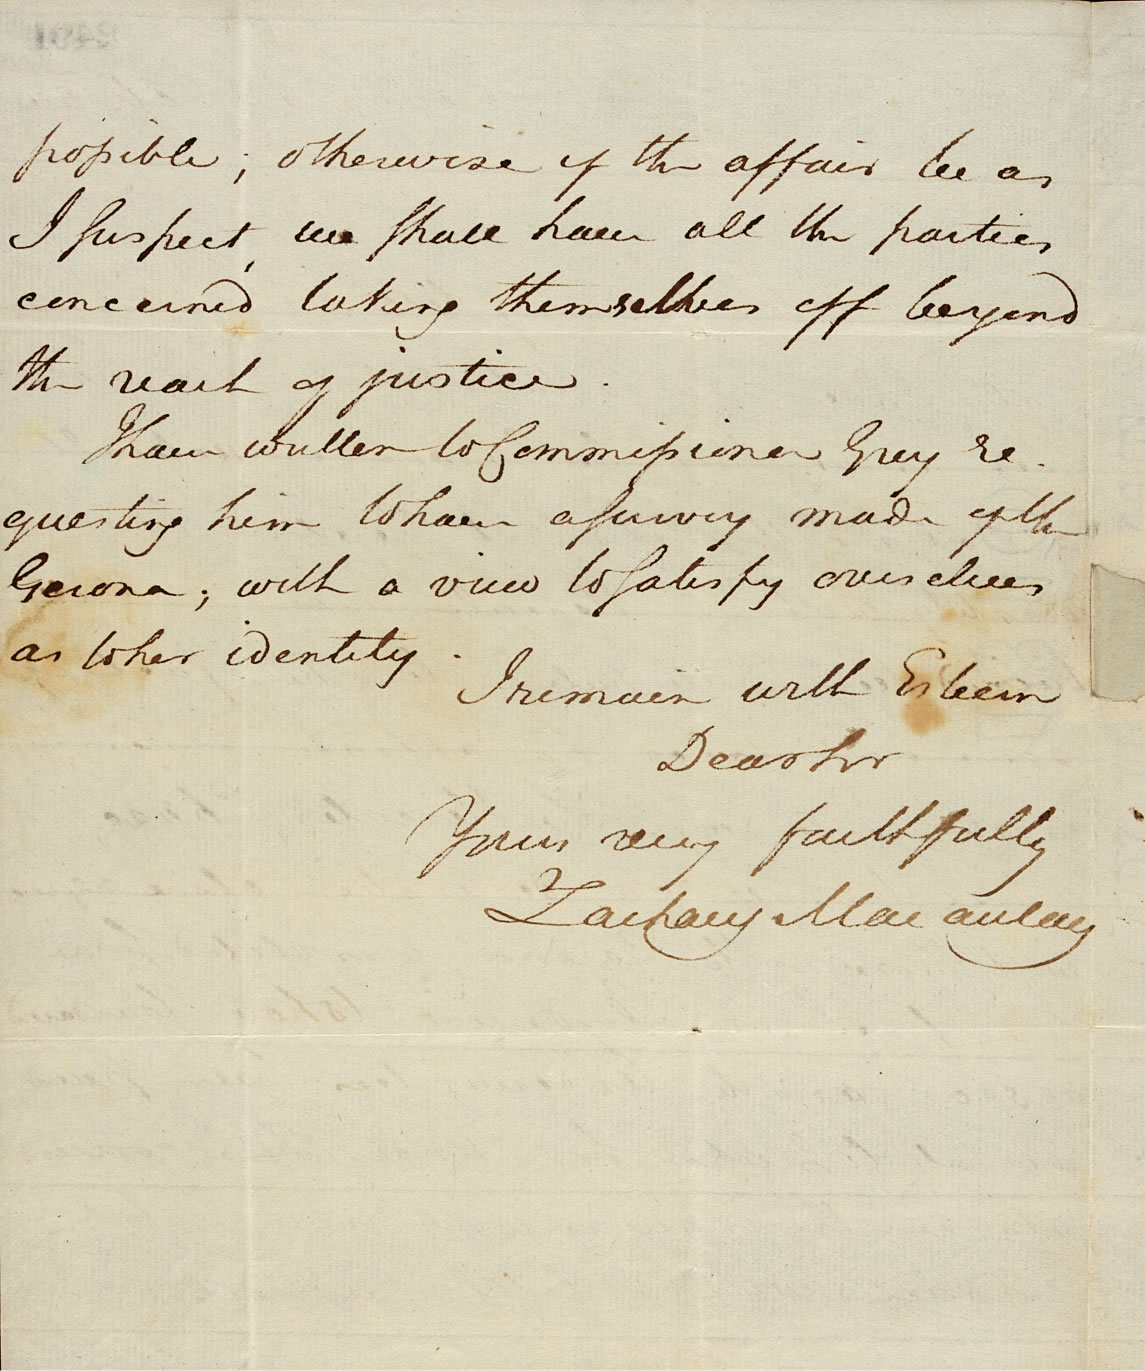 possible; otherwise if the affair be as
I suspect, we shall have all the parties
concerned taking themselves off beyond
the reach of justice.
I have written to Commissioner Grey re-
questing him to have a survey made of the
Gerona; with a view to satisfy ourselves
as to her identity.
I remain with Esteem
Dear Sir
Yours very faithfully
Zachary Macaulay